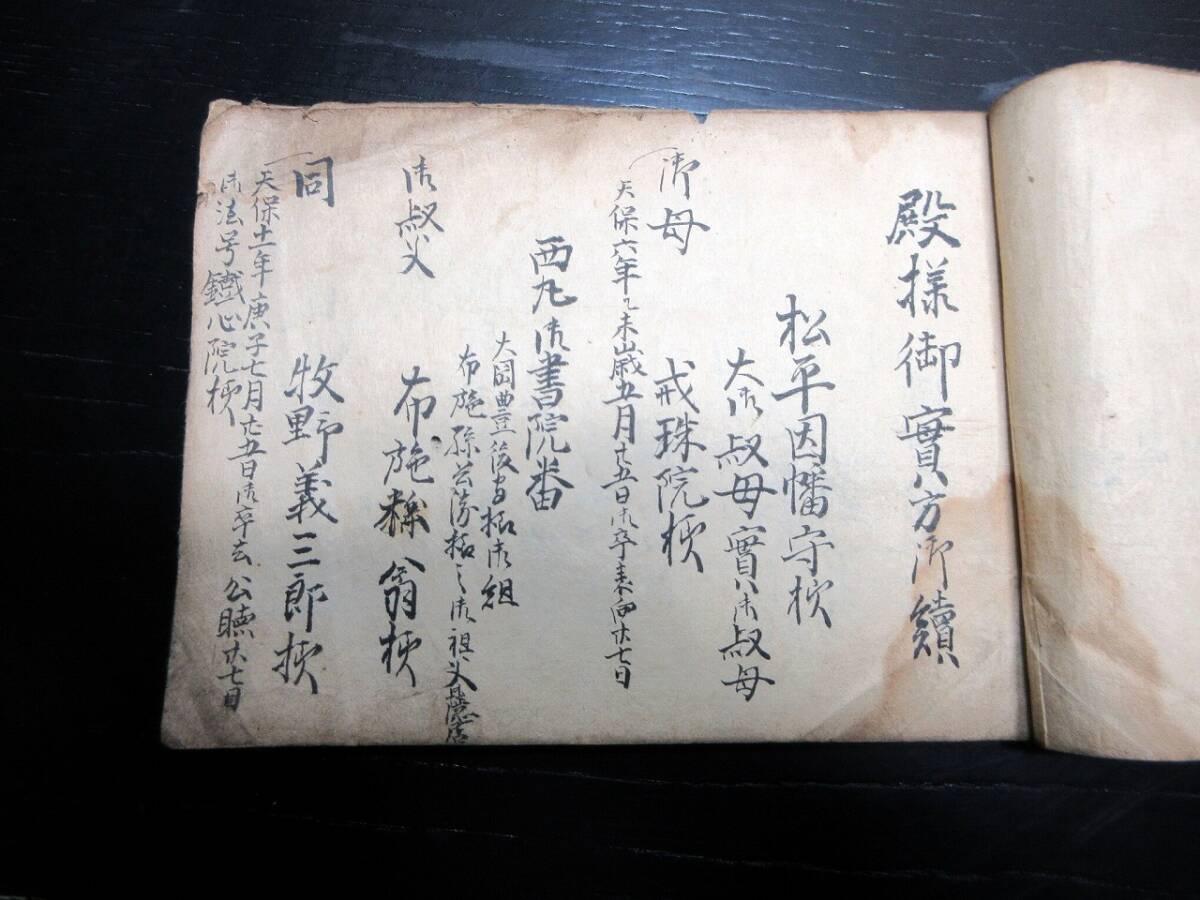 殿様御實方御續
松平因幡守様
大御叔母實ハ御叔母
御母 戒珠院様
天保六年乙未歳五月廿五日御卒 廿七日
西丸御書院番
大岡豊後守様御組
布施孫兵衛様之御祖父隠居
御叔父 布施 翁様
同 牧野義三郎様
天保十一年庚子七月廿五日御卒去 公聴廿七日
御法号鐵心院様